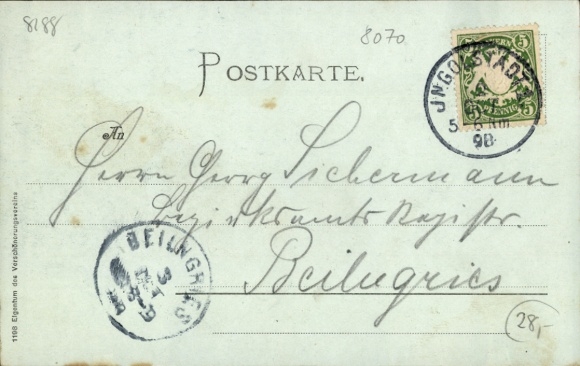 8188
8070
POSTKARTE.
5 5
PFENNIG
JNGOLSTADT
5
98
An
Herrn Georg Sichermann
Bezirksamts Regstr.
Beilngries
BEILNGRIES
3
28,-
1198 Eigentum des Verschönerungsvereins